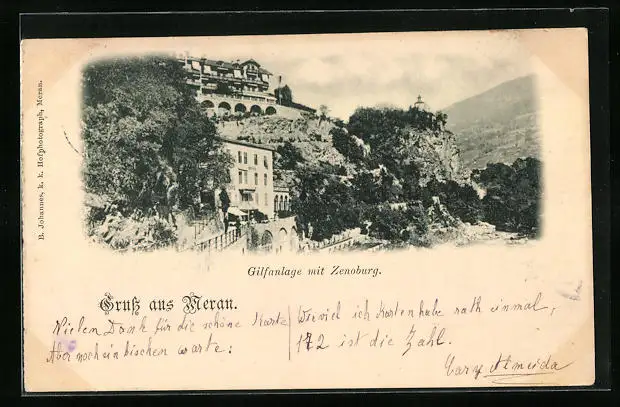 B. Johannes, k. k. Hofphotograph, Meran.
Gilfanlage mit Zenoburg.
Gruß aus Meran.
Vielen Dank für die schöne Karte
Aber noch ein bischen warte:
Wieviel ich Karten habe rath einmal,
172 ist die Zahl.
Almeida